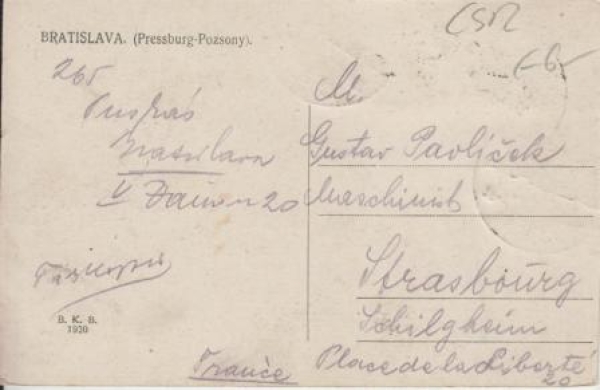 BRATISLAVA. (Pressburg-Pozsony).
ČSR
265
Puskás
Bratislava
V 20
B. K. B.
1920
M.
Gustav Pavlíček
Maschinist
Strasbourg
Schilgheim
Place de la Liberté
20
France